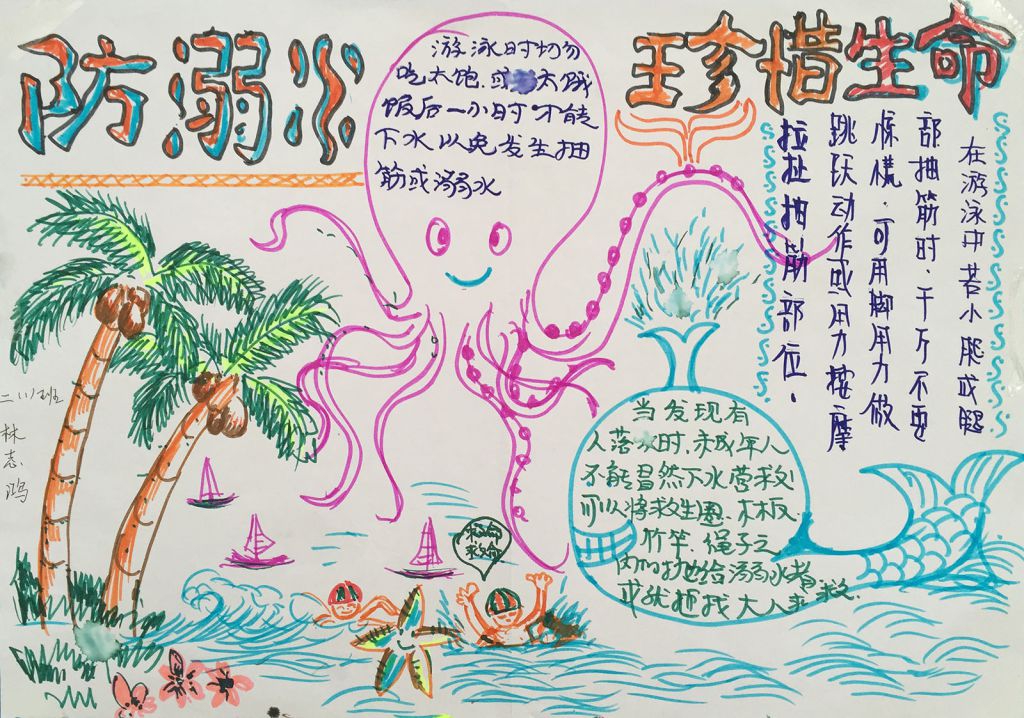 防溺水
珍惜生命
游泳时切勿
吃太饱.或太饿
饭后一小时不能
下水以免发生抽
筋或溺水
在游泳中若小腿或腿
部抽筋时.千万不要
惊慌.可用脚用力做
跳跃动作或用力按摩
拉扯抽筋部位.
当发现有
人落水时,未成年人
不能冒然下水营救!
可以将救生圈、木板
竹竿.绳子之
内的抛给溺水者
或就近找大人来救.
救命
救命
二(1)班
林志鸿